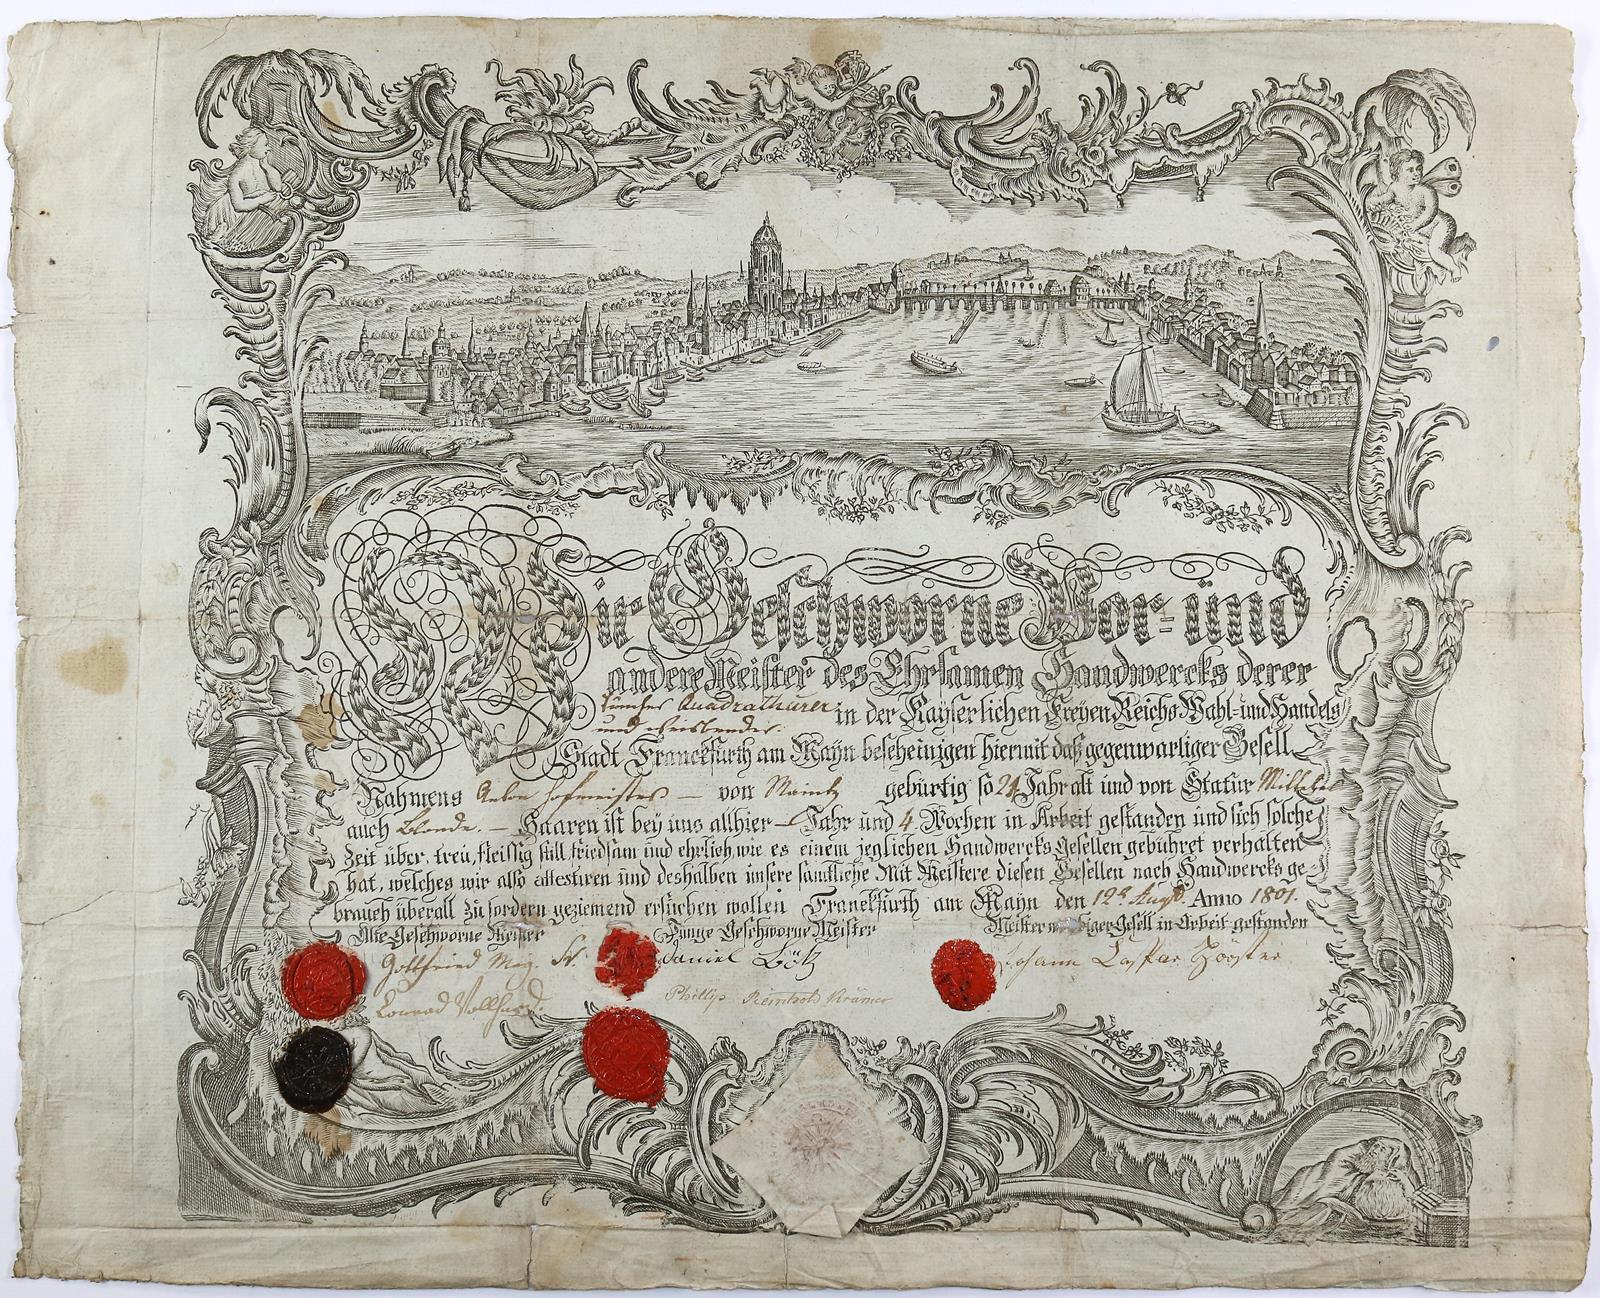 Wir Geschworne Vor= und
andere Meister des Ehrsamen Handwercks derer
Tüncher Quadrathurer
und weisbender.
in der Kayserlichen Freyen Reichs Wahl- und Handels
Stadt Franckfurth am Mayn bescheinigen hiermit daß gegenwartiger Gesell
Nahmens Anton Hofmeister — von Maintz gebürtig so 21 Jahr alt und von Statur Mittel
auch blonde. — Haaren ist bey uns allhier — Jahr und 4 Wochen in Arbeit gestanden und sich solche
Zeit über, treu, fleissig still, friedsam und ehrlich, wie es einem jeglichen Handwercks Gesellen gebühret verhalten
hat, welches wir also attestiren und deshalben unsere sämtliche Mit Meistere diesen Gesellen nach Handwercks ge-
brauch überall zu fordern geziemend ersuchen wollen Franckfurth am Mayn den 12t Aug. Anno 1801.
Alte Geschworne Meister Junge Geschworne Meister Meister Gesell in Arbeit gestanden
Gottfried Daniel Götz Johann
Conrad Vollhard.
Phillip Reinhold Krämer